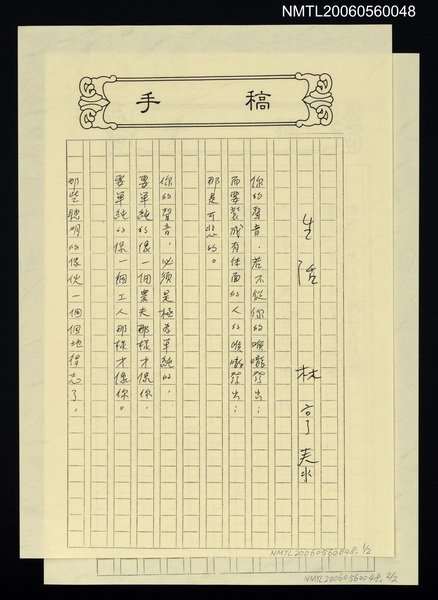 NMTL20060560048
手稿
生活 林亨泰
你的聲音,若不從你的喉嚨發出;
而要裝成有体面的人的喉嚨發出;
那是可悲的。
你的聲音,必須是極為單純的,
要單純的像一個農夫那樣才像你,
要單純的像一個工人那樣才像你。
那些聰明的傢伙一個個地得志了,
NMTL20060560048, 1/2
NMTL20060560048, 2/2